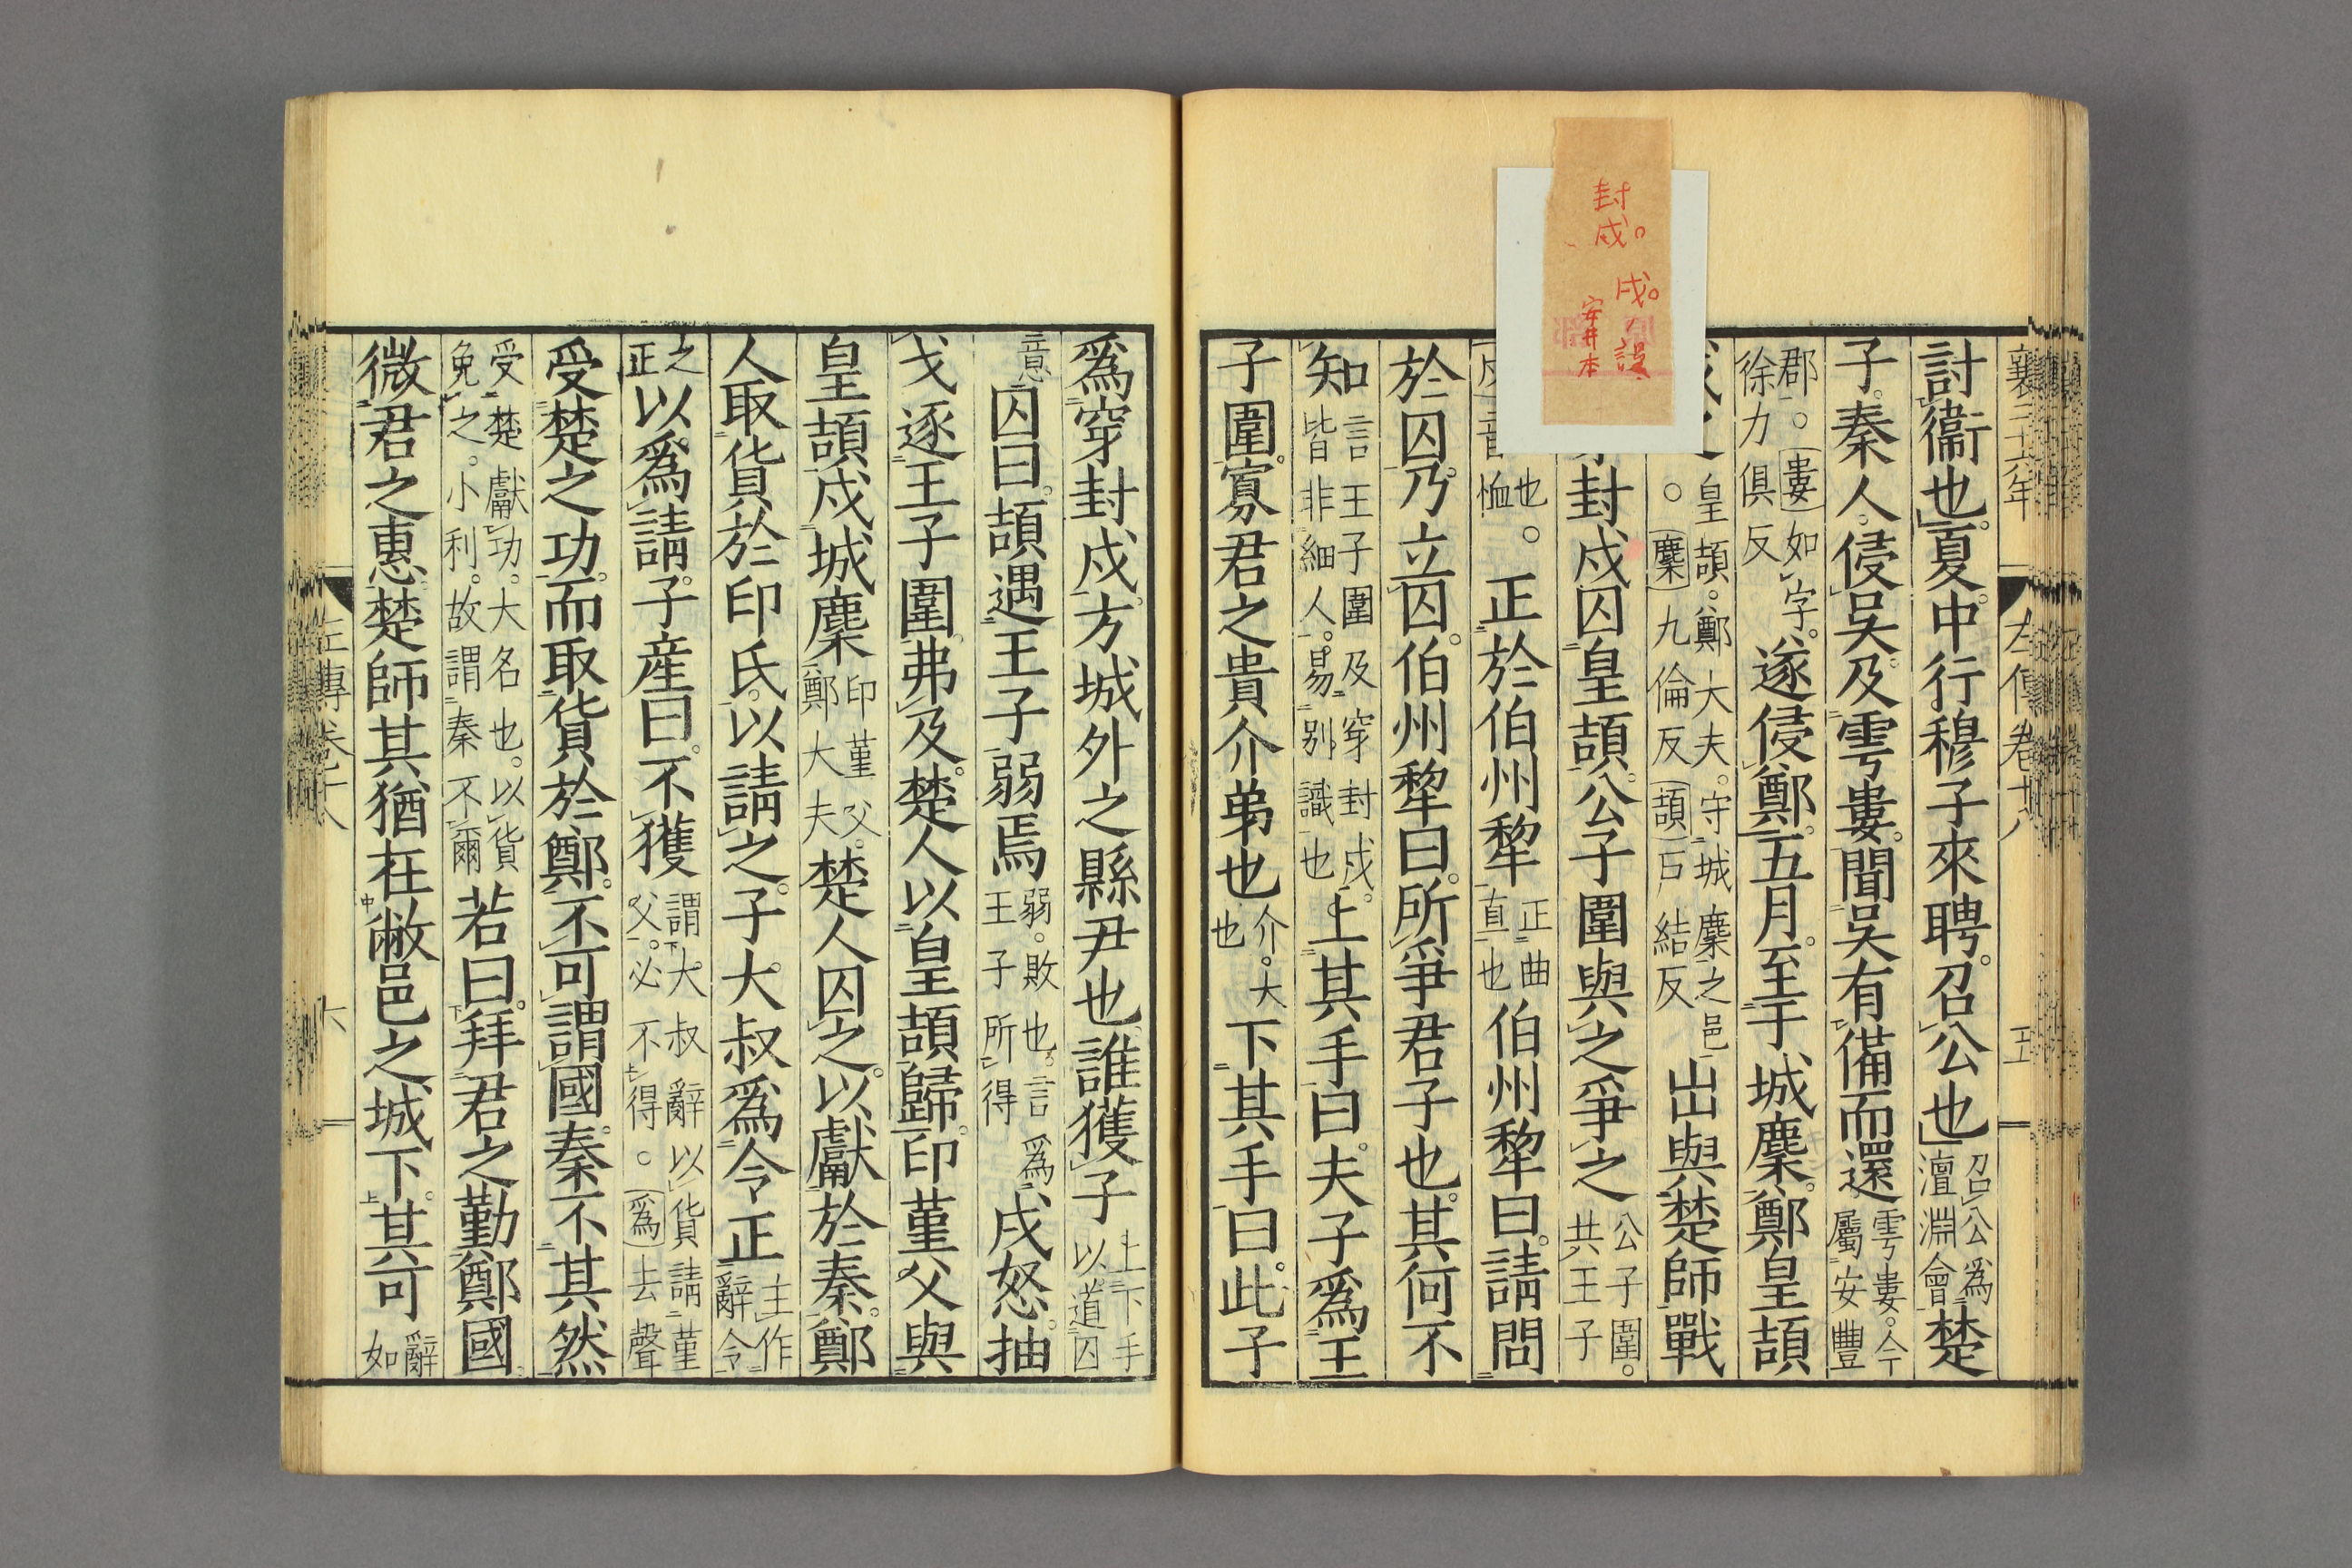 封
戍
戍ノ誤
安井本
左傳卷十八
五
討衞也夏中行穆子來聘召公也召公爲澶淵會楚
子秦人侵吳及雩婁聞吳有備而還雩婁今屬安豐
郡○婁如字徐力俱反遂侵鄭五月至于城麇鄭皇頡
皇頡鄭大夫守城麇之邑○麇九倫反頡戸結反出與楚師戰
封戍囚皇頡公子圍與之爭之公子圍共王子
音恤也○正於伯州犂正曲直也伯州犂曰請問
於囚乃立囚伯州犂曰所爭君子也其何不
知言王子圍及穿封戍皆非細人易別識也上其手曰夫子爲王
子圍寡君之貴介弟也介大也下其手曰此子
爲穿封戍方城外之縣尹也誰獲子上下手以道囚
意囚曰頡遇王子弱焉弱敗也言爲王子所得戍怒抽
戈逐王子圍弗及楚人以皇頡歸印堇父與
皇頡戍城麇印堇父鄭大夫楚人囚之以獻於秦鄭
人取貨於印氏以請之子大叔爲令正主作辭令
之正以爲請子産曰不獲謂大叔辭以貨請堇父必不得○爲去聲
受楚之功而取貨於鄭不可謂國秦不其然
受楚獻功大名也以貨免之小利故謂秦不爾若曰拜君之勤鄭國
微君之惠楚師其猶在敝邑之城下其可辭如
左傳卷十八
六